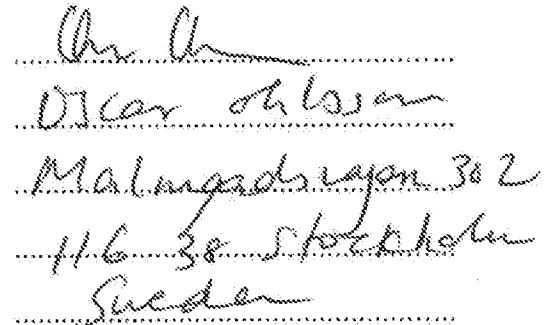 Oscar Ohlsson
Malmgårdsvägen 302
116 38 Stockholm
Sweden